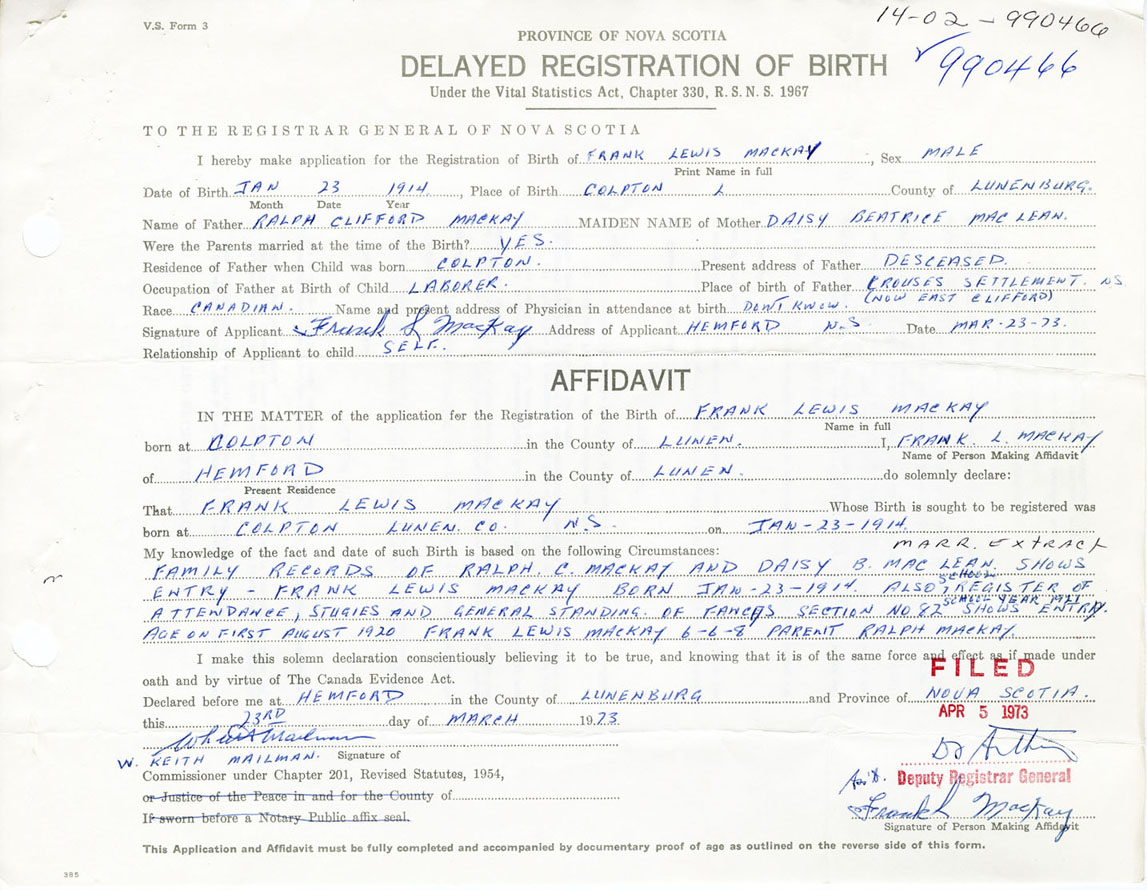 V.S. Form 3
14-02-990466
990466
PROVINCE OF NOVA SCOTIA
DELAYED REGISTRATION OF BIRTH
Under the Vital Statistics Act, Chapter 330, R.S.N.S. 1967
TO THE REGISTRAR GENERAL OF NOVA SCOTIA
I hereby make application for the Registration of Birth of FRANK LEWIS MACKAY, Sex MALE
Print Name in full
Date of Birth JAN 23 1914, Place of Birth COLPTON L County of LUNENBURG.
Month Date Year
Name of Father RALPH CLIFFORD MACKAY MAIDEN NAME of Mother DAISY BEATRICE MAC LEAN.
Were the Parents married at the time of the Birth? YES.
Residence of Father when Child was born COLPTON. Present address of Father DESCEASED.
Occupation of Father at Birth of Child LABORER. Place of birth of Father CROUSES SETTLEMENT. NS
(NOW EAST CLIFFORD)
Race CANADIAN. Name and present address of Physician in attendance at birth DON'T KNOW.
Signature of Applicant Frank L MacKay Address of Applicant HEMFORD N.S. Date MAR-23-73.
Relationship of Applicant to child SELF.
AFFIDAVIT
IN THE MATTER of the application for the Registration of the Birth of FRANK LEWIS MACKAY
Name in full
born at COLPTON in the County of LUNEN. I, FRANK L. MACKAY
Name of Person Making Affidavit
of HEMFORD in the County of LUNEN. do solemnly declare:
Present Residence
That FRANK LEWIS MACKAY Whose Birth is sought to be registered was
born at COLPTON LUNEN. CO. N.S. on JAN-23-1914
My knowledge of the fact and date of such Birth is based on the following Circumstances:
MARR. EXTRACT
FAMILY RECORDS OF RALPH. C. MACKAY AND DAISY B. MAC LEAN. SHOWS
ENTRY - FRANK LEWIS MACKAY BORN JAN-23-1914. ALSO SCHOOL REGISTER OF
SCHOOL YEAR 1921
ATTENDANCE, STUGIES AND GENERAL STANDING. OF SECTION NO 82 SHOWS ENTRY.
AGE ON FIRST AUGUST 1920 FRANK LEWIS MACKAY 6-6-8 PARENT RALPH MACKAY.
I make this solemn declaration conscientiously believing it to be true, and knowing that it is of the same force and effect as if made under
oath and by virtue of The Canada Evidence Act.
FILED
Declared before me at HEMFORD in the County of LUNENBURG and Province of NOVA SCOTIA.
this 23RD day of MARCH 1973
APR 5 1973
W. KEITH MAILMAN. Signature of
Commissioner under Chapter 201, Revised Statutes, 1954,
Deputy Registrar General
or Justice of the Peace in and for the County of
Frank L MacKay
If sworn before a Notary Public affix seal.
Signature of Person Making Affidavit
This Application and Affidavit must be fully completed and accompanied by documentary proof of age as outlined on the reverse side of this form.
385